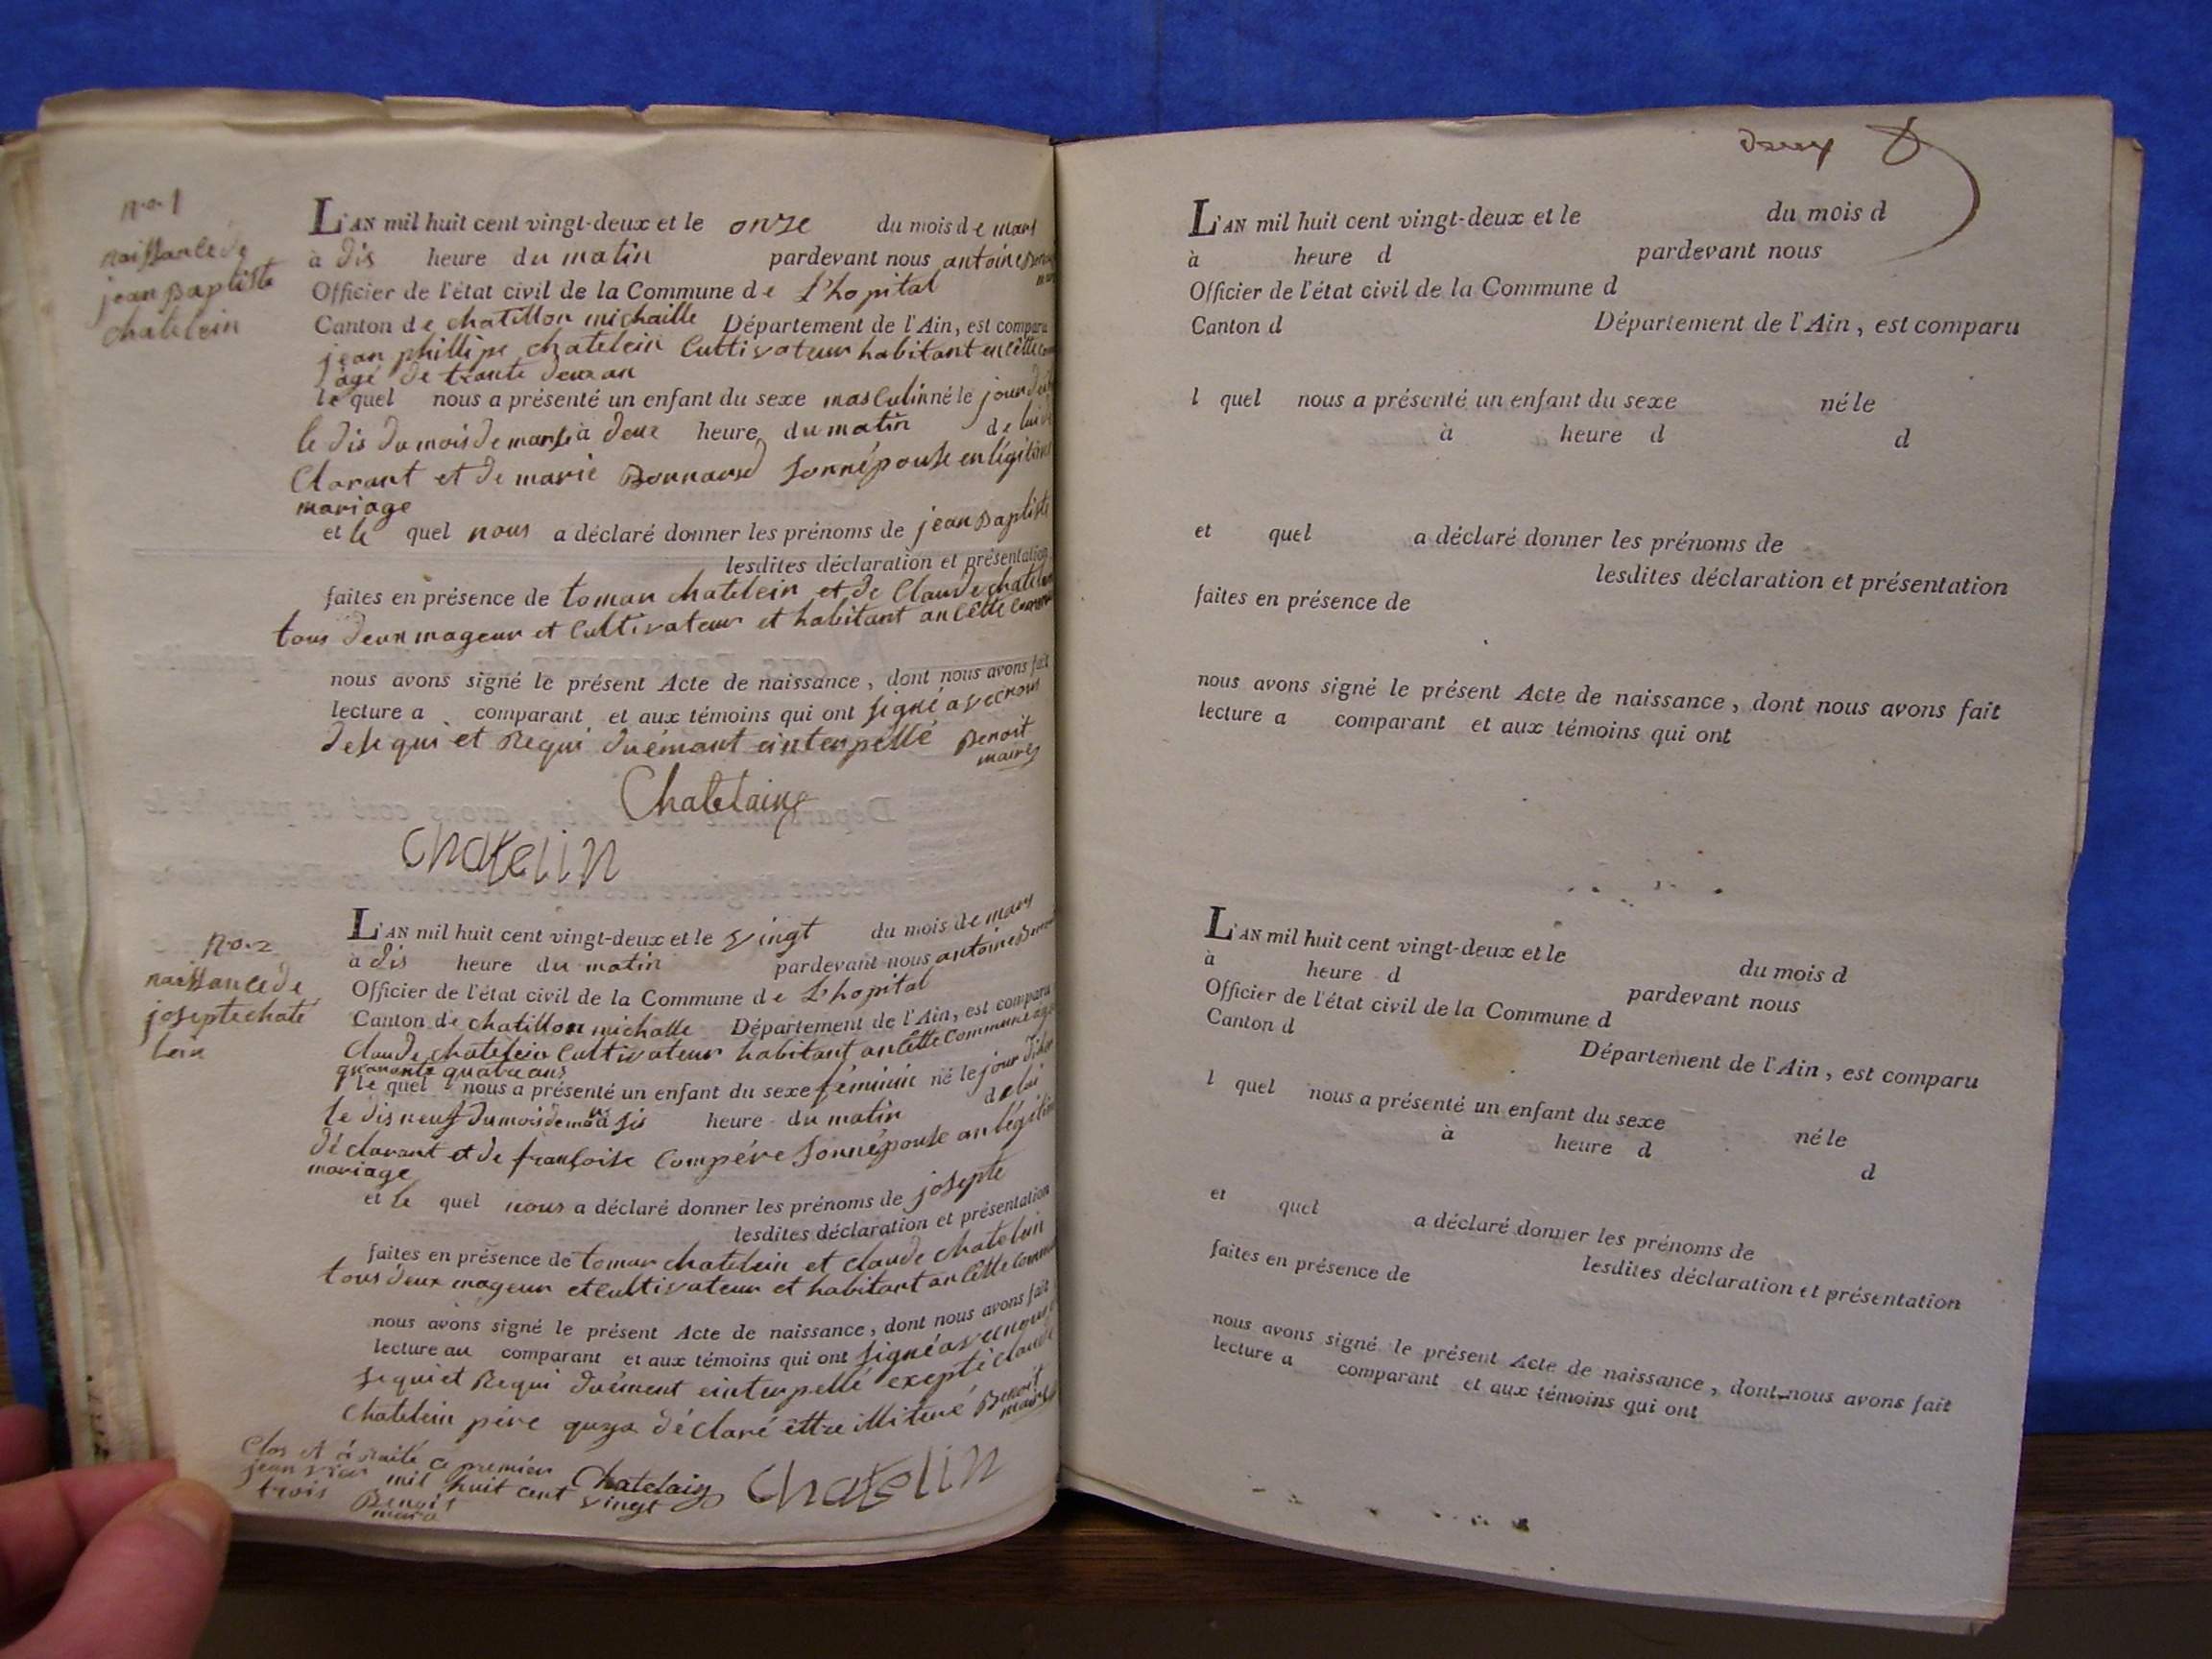 no. 1
naissance de
jean Baptiste
chatelein
L'AN mil huit cent vingt-deux et le onze du mois de mars
à dis heure du matin pardevant nous antoine
Officier de l'état civil de la Commune de L'hopital
Canton de chatillon michaille Département de l'Ain, est comparu
jean phillipe chatelein Cultivateur habitant en cette
agé de trante deux an
le quel nous a présenté un enfant du sexe masculin né le jour
le dis du mois de mars à deux heure du matin de lui
Clarant et de marie Bonnard sonnépouse en légitime
mariage
et le quel nous a déclaré donner les prénoms de jean Baptiste
lesdites déclaration et présentation
faites en présence de tomas chatelein et de Claude chatelein
tous deux mageur et Cultivateur et habitant an cette
nous avons signé le présent Acte de naissance, dont nous avons fait
lecture a comparant et aux témoins qui ont signé avec nous
de se qui et Requi duémant einterpéllé Benoit
maire
Chatelain
chatelin
no. 2
naissance de
josepte chate
lein
L'AN mil huit cent vingt-deux et le vingt du mois de mars
à dis heure du matin pardevant nous antoine
Officier de l'état civil de la Commune de L'hopital
Canton de chatillon michalle Département de l'Ain, est comparu
Claude chatelein Cultivateur habitant an cette Commune agé
quarante quatre ans
le quel nous a présenté un enfant du sexe féminin né le jour
le dis neuf du mois de mars à sis heure du matin de lui
déclarant et de françoise Compére sonnépouse an légitime
mariage
et le quel nous a déclaré donner les prénoms de josepte
lesdites déclaration et présentation
faites en présence de tomas chatelein et claude chatelein
tous deux mageur et cultivateur et habitant an cette
nous avons signé le présent Acte de naissance, dont nous avons fait
lecture au comparant et aux témoins qui ont signé avec nous
se qui et Requi duément einterpellé exepté claude
chatelein pére déclaré ettre illiteré Benoit
maire
Clos et arraité ce premier
jeanvier mil huit cent vingt
trois Benoit
maire
Chatelain
chatelin
deux
L'AN mil huit cent vingt-deux et le du mois d
à heure d pardevant nous
Officier de l'état civil de la Commune d
Canton d Département de l'Ain, est comparu
l quel nous a présenté un enfant du sexe né le
à heure d d
et quel a déclaré donner les prénoms de
lesdites déclaration et présentation
faites en présence de
nous avons signé le présent Acte de naissance, dont nous avons fait
lecture a comparant et aux témoins qui ont
L'AN mil huit cent vingt-deux et le du mois d
à heure d pardevant nous
Officier de l'état civil de la Commune d
Canton d Département de l'Ain, est comparu
l quel nous a présenté un enfant du sexe né le
à heure d d
et quel a déclaré donner les prénoms de
lesdites déclaration et présentation
faites en présence de
nous avons signé le présent Acte de naissance, dont nous avons fait
lecture a comparant et aux témoins qui ont